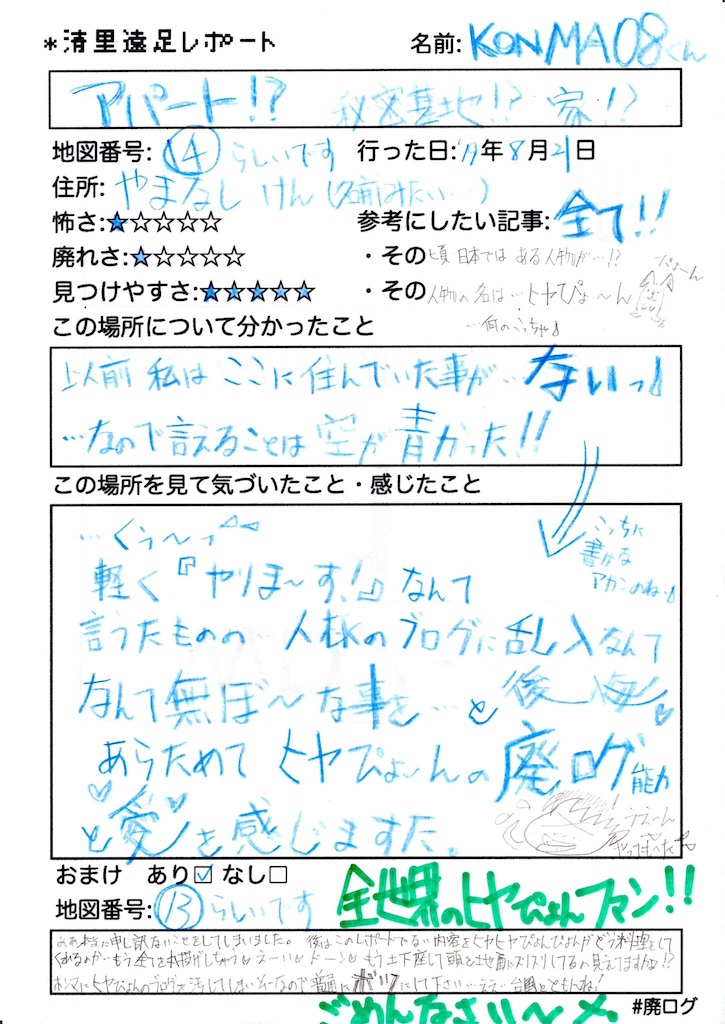 *清里遠足レポート
名前: KONMA08くん
アパート!? 秘密基地!? 家!?
地図番号: 14 らしいです 行った日:'11年8月21日
住所: やまなし けん(名前みたい…)
怖さ:★☆☆☆☆ 参考にしたい記事: 全て!!
廃れさ:★☆☆☆☆ ・その頃 日本では ある人物が…!?
ぴょーん
見つけやすさ:★★★★★ ・その人物の名は…ヒヤぴょ〜ん
…何のこっちゃ♪
この場所について分かったこと
以前 私は ここに住んでいた事が…ないっ♪
…なので言えることは 空が青かった!!
この場所を見て気づいたこと・感じたこと
こっちに
書かな
アカンのね…♪
…くぅ〜っ
軽く『やりまーす!』なんて
言うたものの… 人様のブログに乱入なんて
なんて無ぼ〜な事を…と後悔
あらためて ヒヤぴょ〜んの廃ログ能力
と愛を感じますた。
うえ〜ん
やってもーた
おまけ あり☑ なし□
地図番号: 13 らしいです
全世界のヒヤぴょんファン!!
ああ本当に申し訳ないことをしてしまいました。 後はこのレポートでない内容をヒヤヒヤぴょんぴょんがどう料理をして
くれるのか…もう全てお投げしちゃう え〜い ド〜ン もう土下座して頭を地面にスリスリしてるの見えてますかぁ!?
ホンマにヒヤぴょんのブログを汚してしまいそーなので普通にボツにして下さい…ええ…台風とともんね!
ごめんなさい〜
#廃ログ